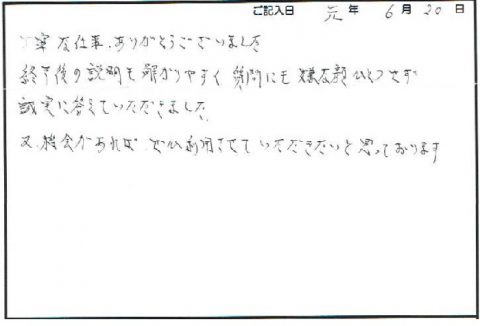 ご記入日 元年6月20日
丁寧な仕事、ありがとうございました
終了後の説明も解かりやすく 質問にも嫌な顔ひとつせず
誠実に答えていただきました。
又、機会があれば ぜひ利用させていただきたいと思っております